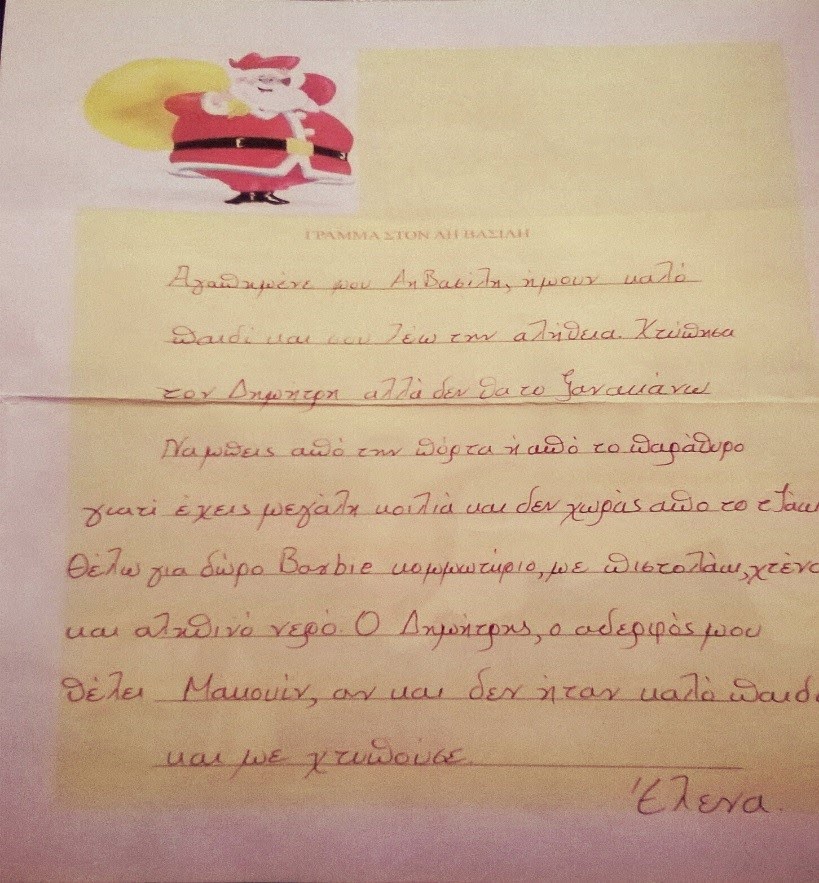 ΓΡΑΜΜΑ ΣΤΟΝ ΑΗ ΒΑΣΙΛΗ
Αγαπημένε μου Αη Βασίλη, ήμουν καλό
παιδί και σου λέω την αλήθεια. Χτύπησα
τον Δημήτρη αλλά δεν θα το ξανακάνω
Να μπεις από την πόρτα ή από το παράθυρο
γιατί έχεις μεγάλη κοιλιά και δεν χωράς απο το τζάκι
Θέλω για δώρο Barbie κομμωτήριο, με πιστολάκι, χτένα
και αληθινό νερό. Ο Δημήτρης, ο αδερφός μου
θέλει Μακουίν, αν και δεν ήταν καλό παιδί
και με χτυπούσε.
Έλενα.